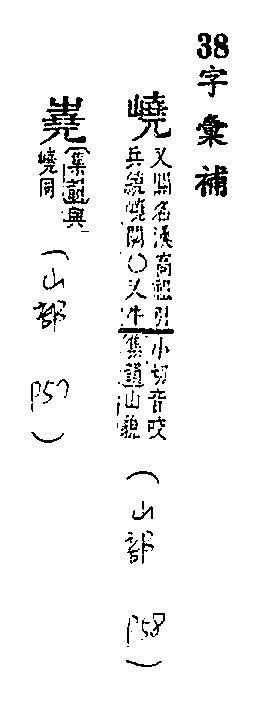 38字彙補
嶢
又關名漢高祖引
兵繞嶢關〇又牛
小切音咬
集韻山貌
(山部 P58)
嶤
集韻與
嶢同
(山部 P57)